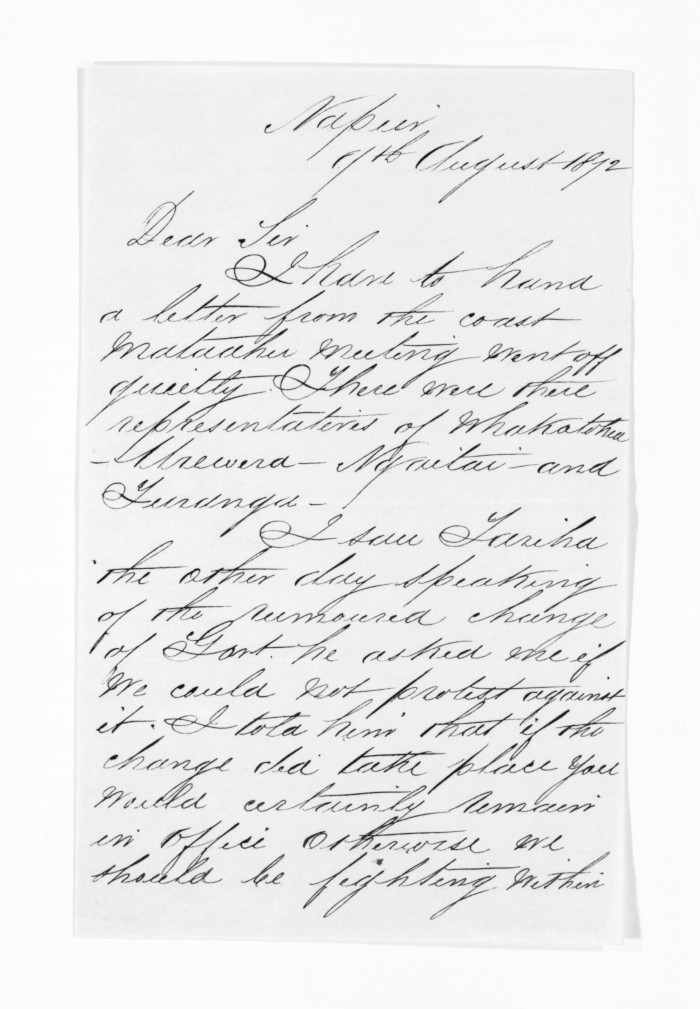 Napier
9th August 1872
Dear Sir
I have to hand
a letter from the coast
Mataahu meeting went off
quietly. There were there
representatives of Whakatohea
- Urewera - Ngaitai - and
Turanga -
I saw Tareha
the other day speaking
of the rumoured change
of Govt. he asked me if
we could not protest against
it. I told him that if the
change did take place you
would certainly remain
in office otherwise we
should be fighting within